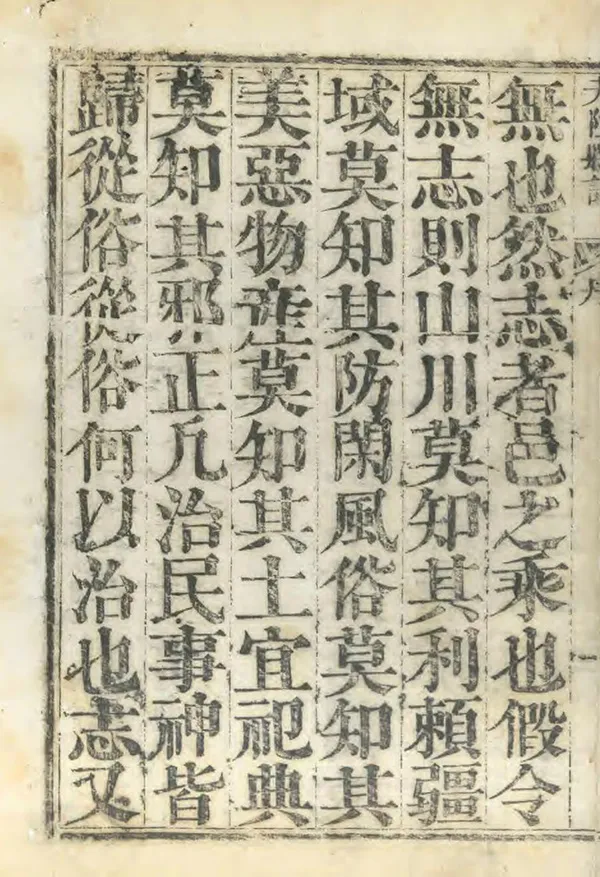 無也然志者邑之乘也假令
無志則山川莫知其利頼疆
域莫知其防閑風俗莫知其
美惡物産莫知其土宜祀典
莫知其邪正凡治民事神皆
歸從俗從俗何以治也志又